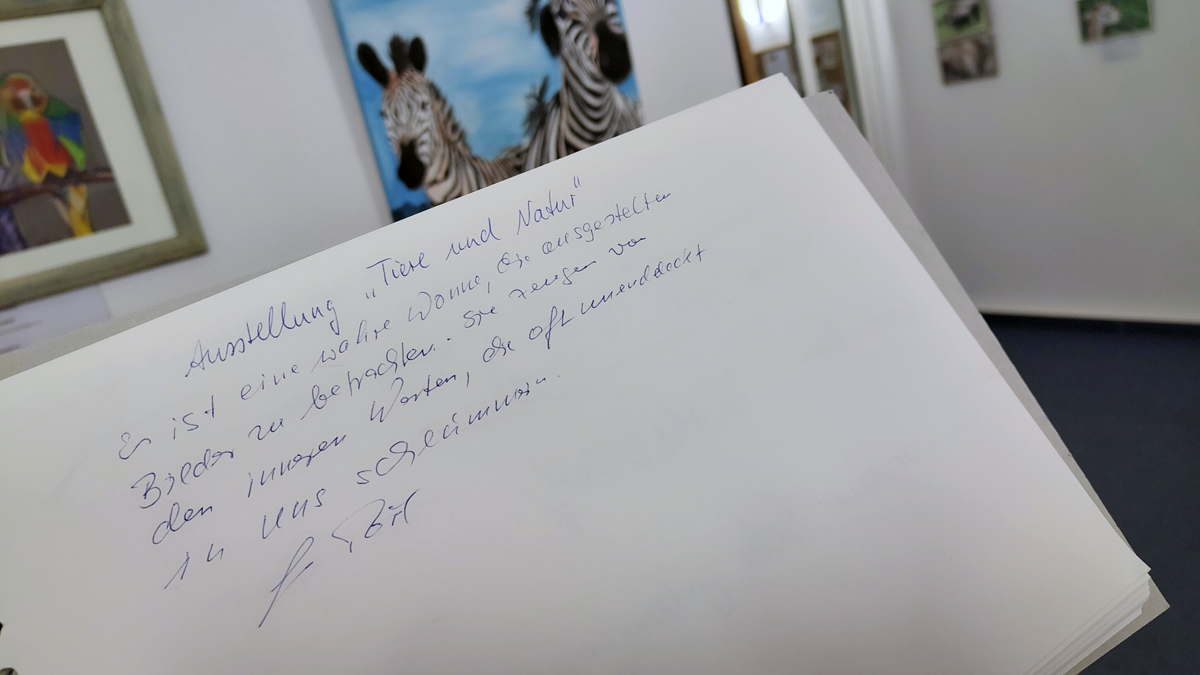 Ausstellung „Tiere und Natur"
Es ist eine wahre Wonne, die ausgestellten
Bilder zu betrachten. Sie zeugen von
den inneren Werten, die oft unentdeckt
in uns schlummern.